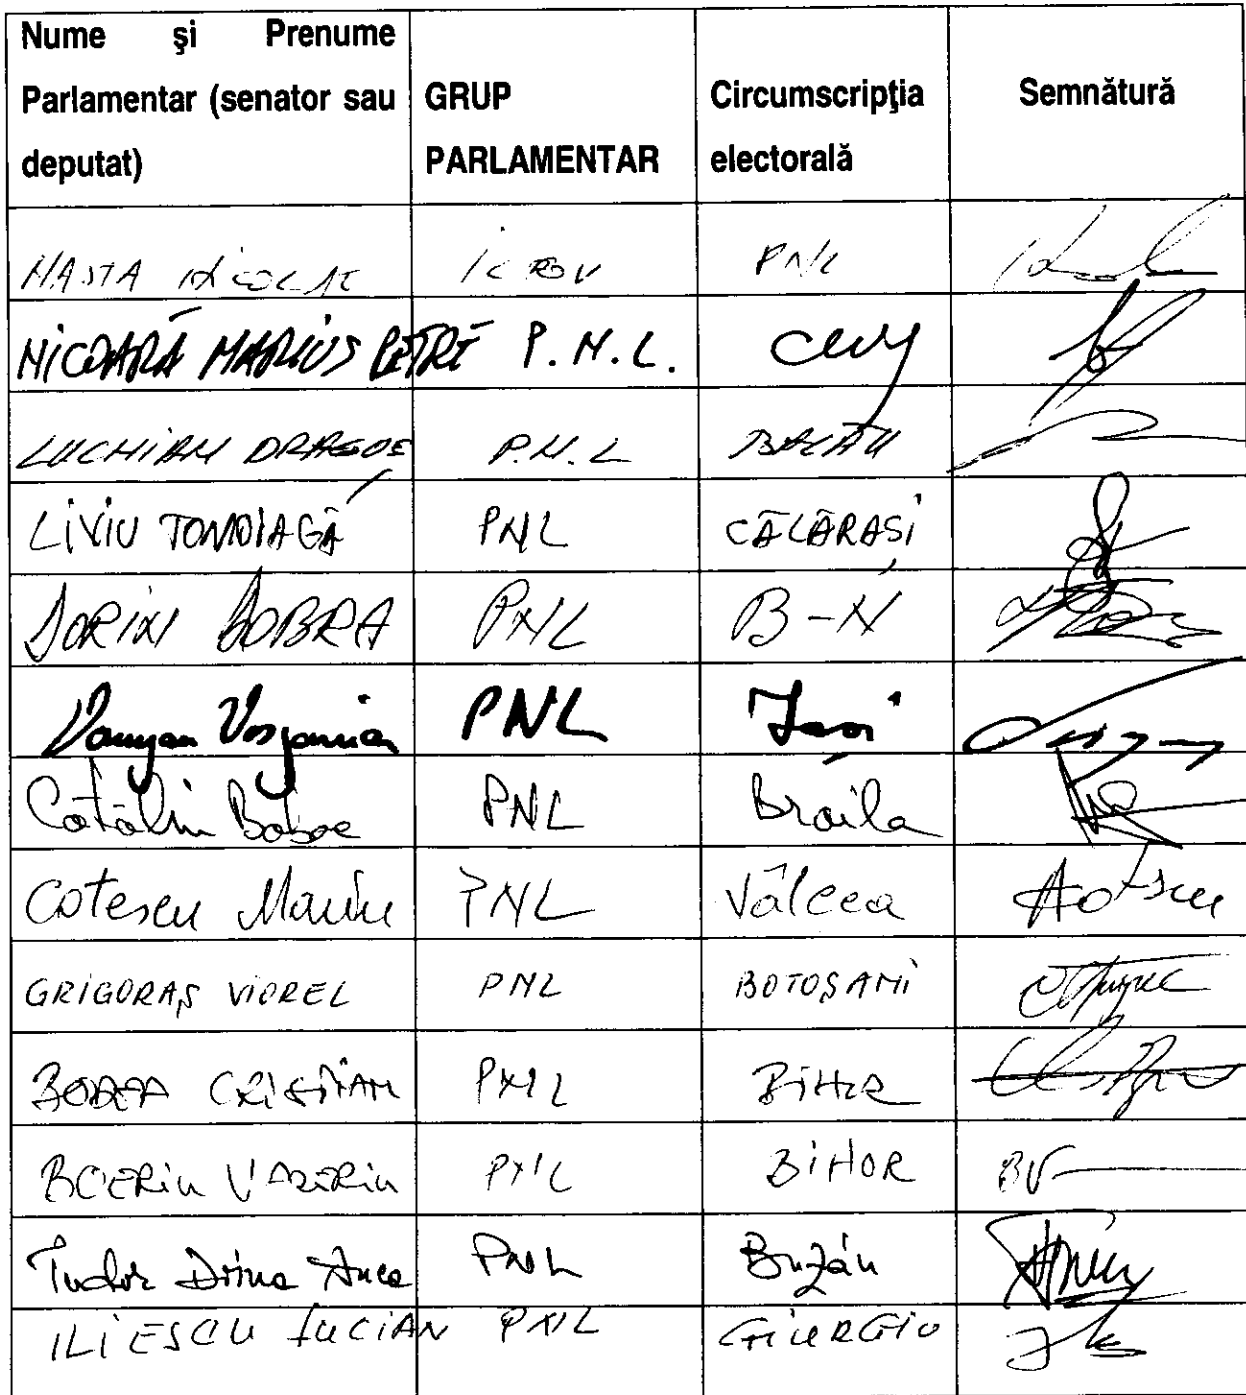 Nume şi Prenume
Parlamentar (senator sau
deputat)
GRUP
PARLAMENTAR
Circumscripţia
electorală
Semnătură
NASTA NICOLAE ILFOV PNL
NICOARĂ MARIUS PETRE P.N.L. CLUJ
LUCHIAN DRAGOȘ P.N.L BACĂU
LIVIU TOMOIAGĂ PNL CĂLĂRAȘI
DORIN BOBRA PNL B-N
Varujan Vosganian PNL Iași
Cătălin Boboc PNL Brăila
Cotescu Marin PNL Vâlcea
GRIGORAȘ VIOREL PNL BOTOȘANI
BODEA CRISTIAN PNL BIHOR
BOERIU VALERIU PNL BIHOR BV
Tudor Doina Anca PNL Buzău
ILIESCU LUCIAN PNL GIURGIU